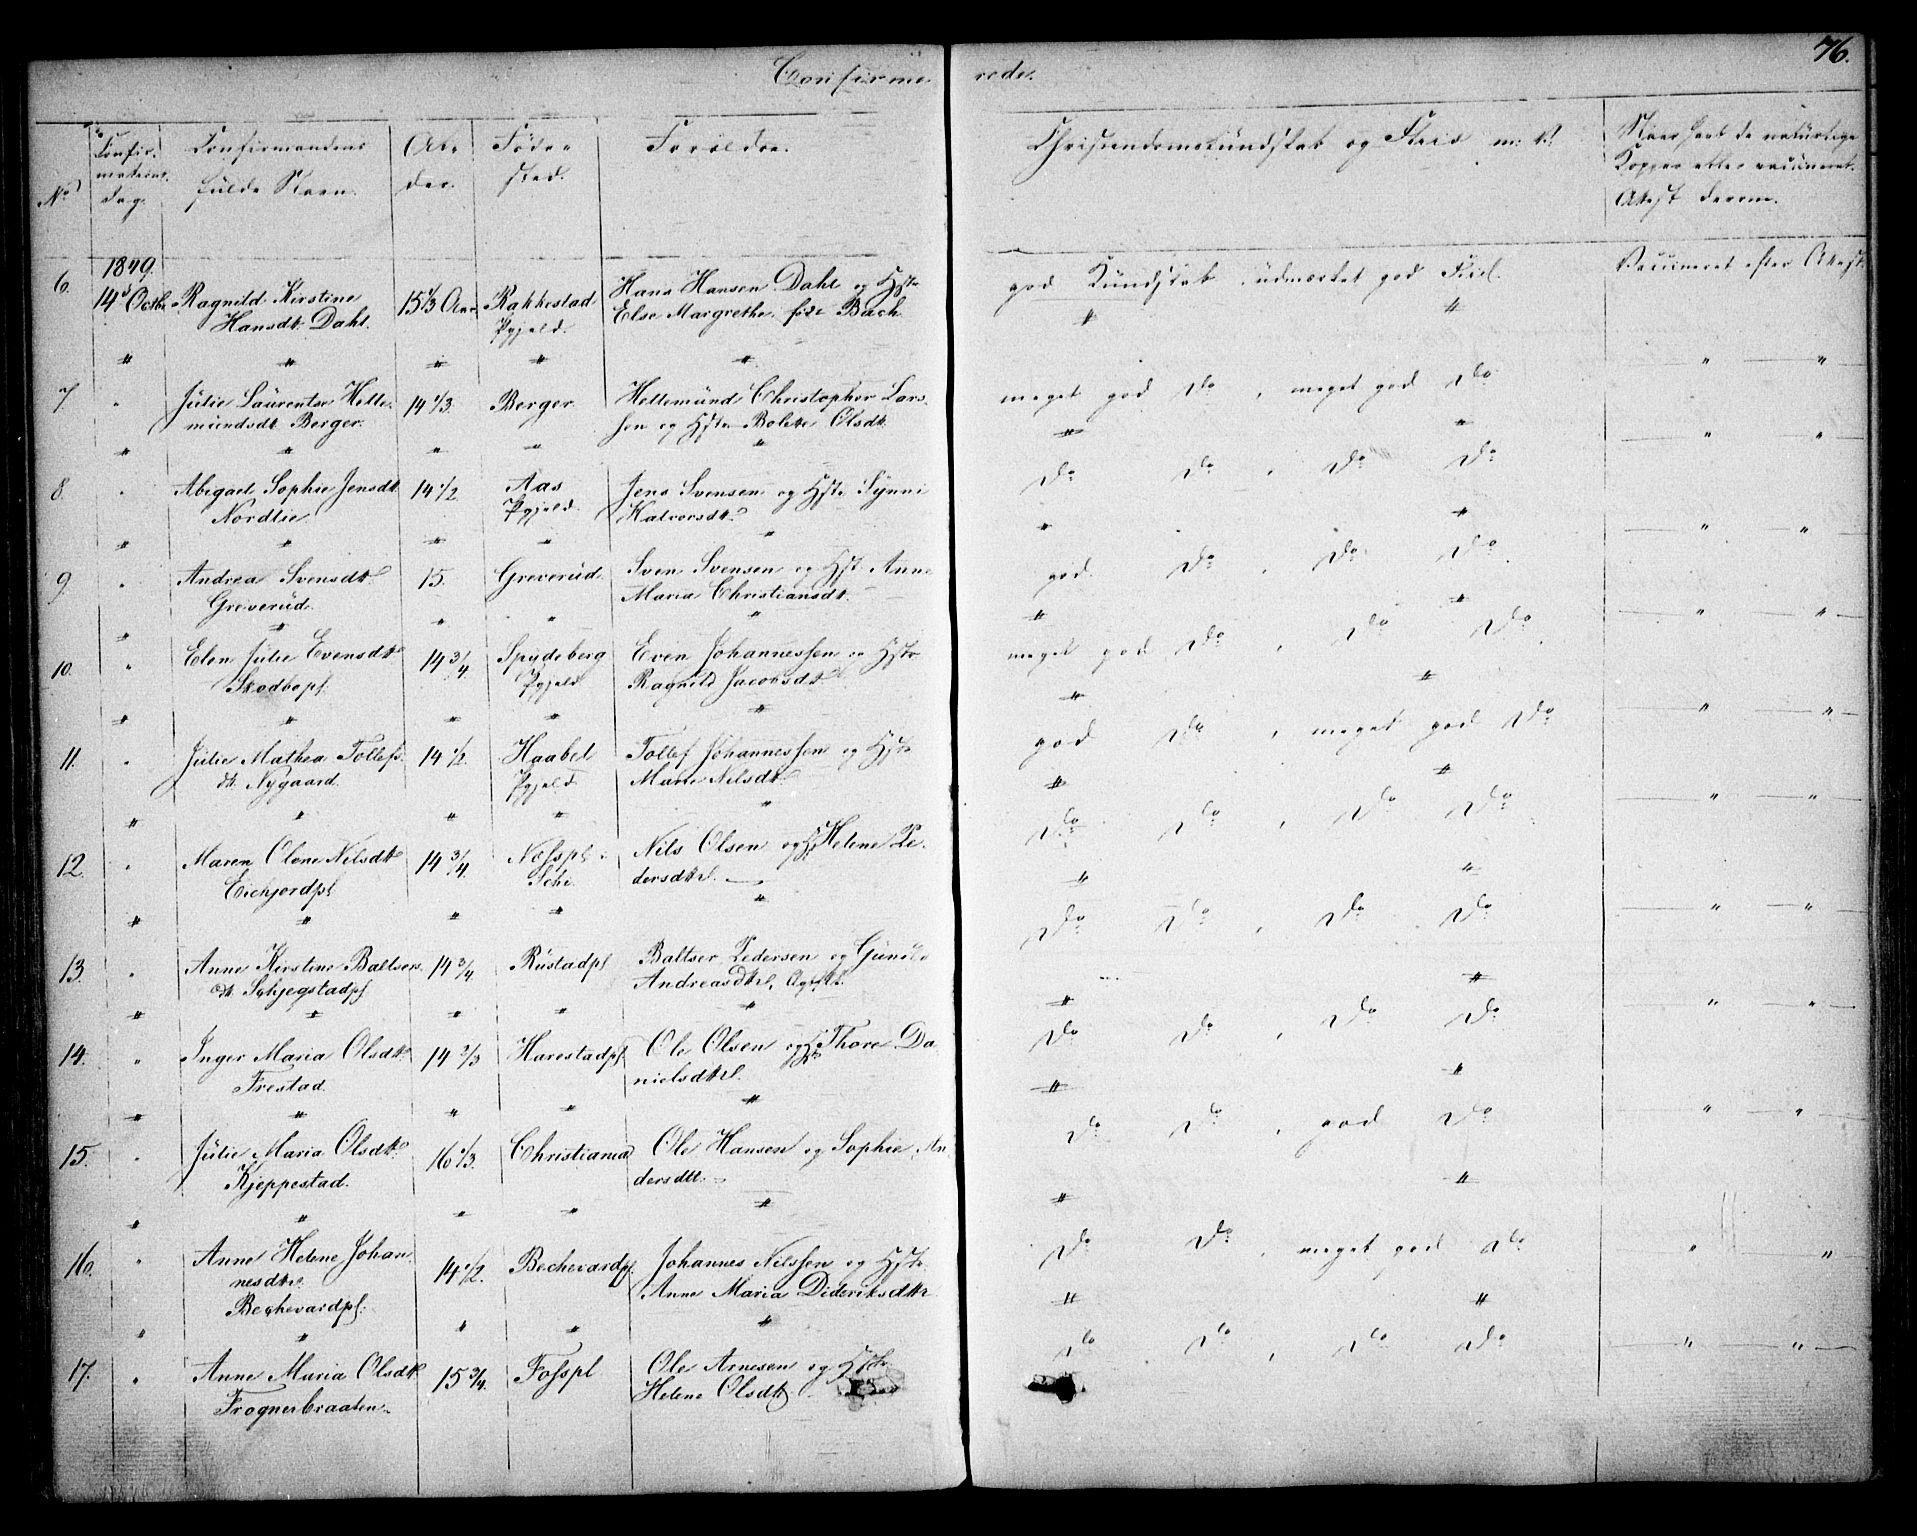 76.
Confirmerede.
No
Confirmations Dag.
Confirmandens fulde Navn.
Alder.
Fødested.
Forældre.
Christendomskundskab og Flid m. V.
Naar havt de naturlige Kopper eller vaccineret. Attest derom.
1849.
6. 14de Octbr. Ragnild Kirstine 15 1/3 Aar Rakkestad Hans Hansen Dahl og Hstr god Kundskab, udmærket god Flid. Vaccineret efter Attest.
Hansdt. Dahl. Pgjeld. Else Margrethe født Bach
7. " Julie Laurentse Helle- 14 1/3. Berger. Hellemund Christopher Lars- meget god Do, meget god Do " "
mundsdt. Berger. sen og Hstr Bolette Olsdt.
8. " Abigael Sophie Jensdt. 14 1/2 Aas Jens Svensen og Hstr Synni Do Do, Do Do " "
Nordlie Pgjeld. Halvorsdt.
9 " Andrea Svensdt. 15. Greverud. Sven Svensen og Hst. Anne god Do, Do Do " "
Greverud. Maria Christiansdt.
10. " Elen Julie Evensdt. 14 3/4 Spydeberg Even Johannessen og Hstr meget god Do, Do Do " "
Pgjeld. Ragnild Jacobsdt.
11. " Julie Mathea Tollefs- 14 1/2. Haabel Tollef Johannessen og Hstr god Do, meget god Do " "
dt. Nygaard. Pgjeld. Marie Nilsdt.
12. " Maren Olene Nilsdt. 14 3/4. Næsspl Nils Olsen og Hst Helene Pe- Do Do, Do Do " "
Schi. dersdtr.
13. " Anne Kirstine Baltsers- 14 3/4 Rustadpl Baltser Pedersen og Gunild Do Do, Do Do " "
dt. Schjegstadpl. Andreasdtr.
14. " Inger Maria Olsdt. 14 2/3 Harestadpl. Ole Olsen og Hst Thore Da- Do Do, Do Do " "
Frestad. nielsdtr.
15. " Julie Maria Olsdt. 16 1/3. Christiania Ole Hansen og Sophie An- Do Do, god Do " "
Kjeppestad. dersdtt.
16. " Anne Helene Johan- 14 1/2. Bechevardpl. Johannes Nilssen og Hstr Do Do, meget god Do " "
nesdtr. Anne Maria Dideriksdtr
Bechevardpl.
17. " Anne Maria Olsdt. 15 3/4. Fosspl Ole Arnesen og Hstr Do Do, Do Do " "
Frognerbraaten. Helene Olsdt.